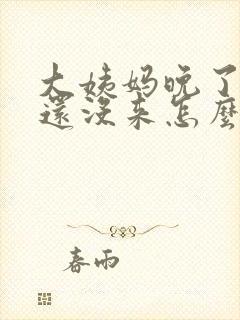 大姨妈晚了
還没来怎麼
春雨